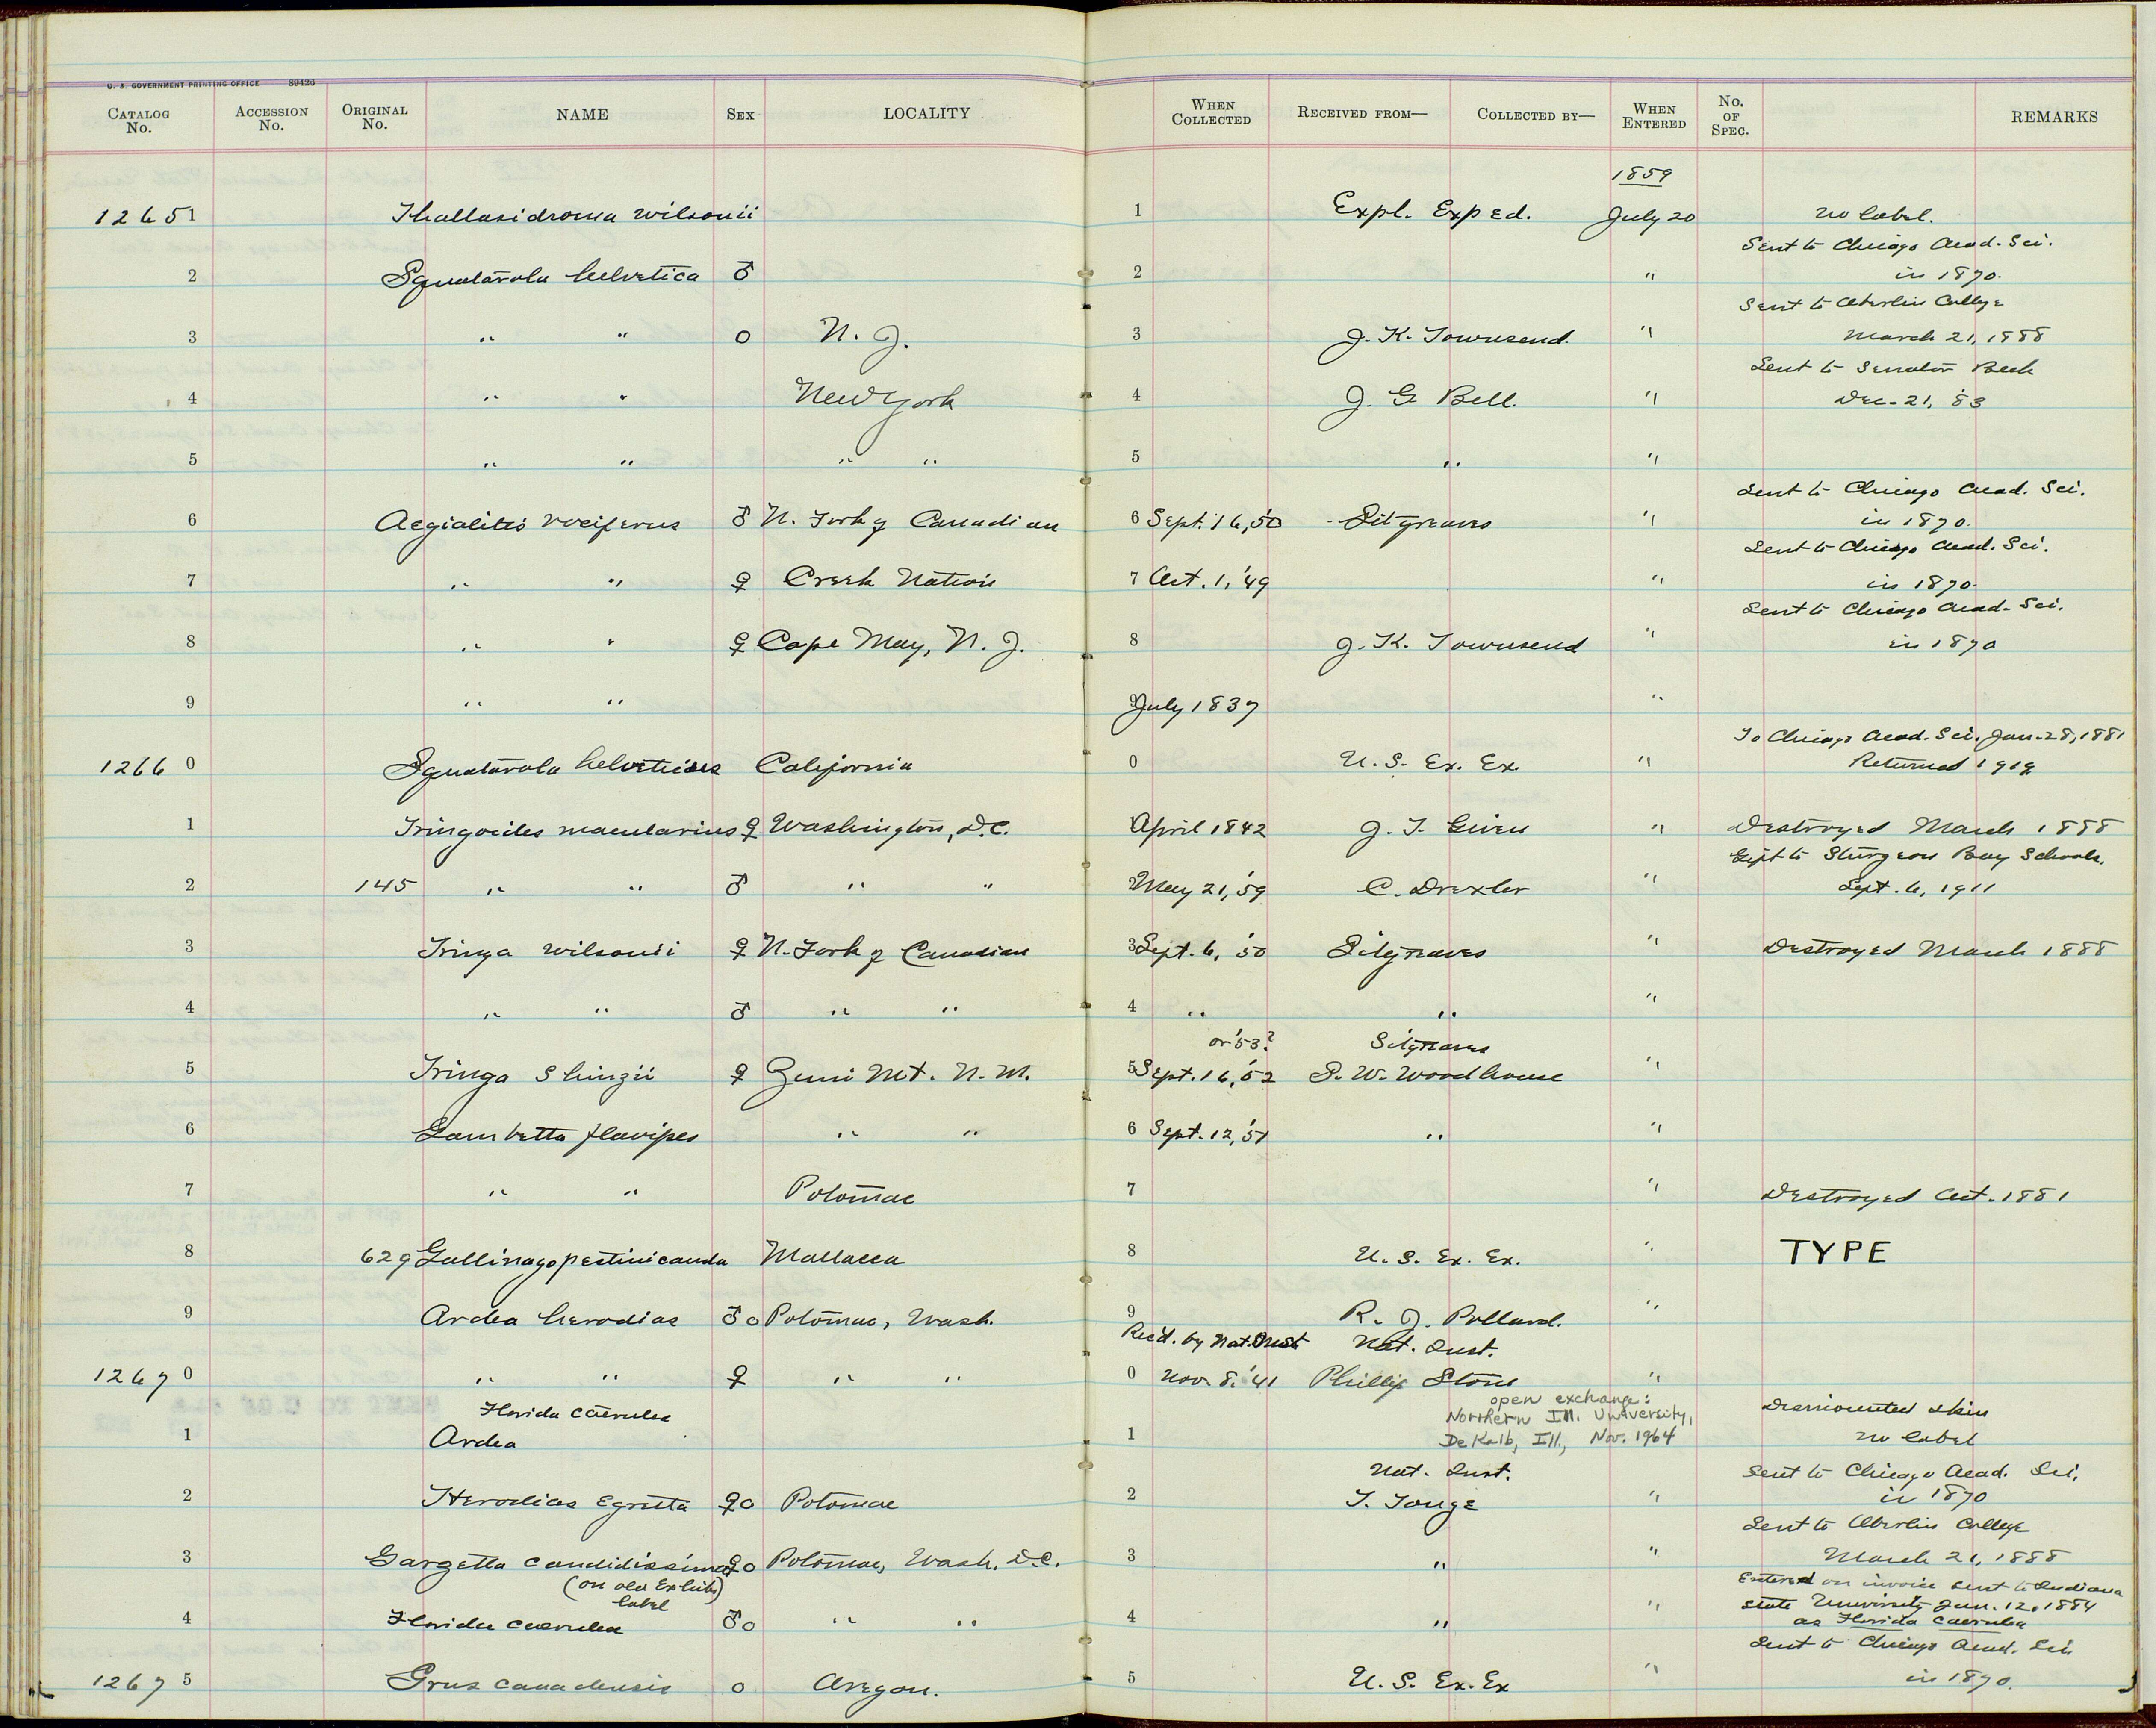 U. S. GOVERNMENT PRINTING OFFICE 89426
CATALOG No. ACCESSION No. ORIGINAL No. NAME SEX LOCALITY WHEN COLLECTED RECEIVED FROM— COLLECTED BY— WHEN ENTERED No. OF SPEC. REMARKS
1859
12651 Thallasidroma wilsonii 1 Expl. Exped. July 20 no label.
Sent to Chicago Acad. Sci.
2 Squatarola helvetica ♂ 2 " in 1870.
Sent to Oberlin College
3 " " o N. J. 3 J. K. Townsend. " March 21, 1888
Sent to Senator Beck
4 " " New York 4 J. G. Bell. " Dec. 21, '83
5 " " " " 5 " "
Sent to Chicago Acad. Sci.
6 Aegialitis vociferus ♂ N. Fork of Canadian 6 Sept. 16, '50 Sitgreaves " in 1870.
Sent to Chicago Acad. Sci.
7 " " ♀ Creek Nation 7 Oct. 1, '49 " in 1870.
Sent to Chicago Acad. Sci.
8 " " ♀ Cape May, N. J. 8 J. K. Townsend " in 1870
9 " " 9 July 1837 "
To Chicago Acad. Sci. Jan. 28, 1881
12660 Squatarola California 0 U. S. Ex. Ex. " Returned 1919
1 Tringoides macularius ♀ Washington, D.C. 1 April 1842 J. T. Given " Destroyed March 1888
Gift to Sturgeon Bay Schools,
2 145 " " ♂ " " 2 May 21, '59 C. Drexler " Sept. 6, 1911
3 Tringa wilsonii ♀ N. Fork of Canadian 3 Sept. 6, '50 Sitgreaves " Destroyed March 1888
4 " " ♂ " " 4 " " "
or '53? Sitgreaves
5 Tringa shinzii ♀ Zuni Mt. N. M. 5 Sept. 16, '52 S. W. Woodhouse "
6 Gambetta flavipes " " 6 Sept. 12, '51 " "
7 " " Potomac 7 " Destroyed Oct. 1881
8 629 Gallinago pectinicauda Mallacca 8 U. S. Ex. Ex. " TYPE
9 Ardea herodias ♂ o Potomac, Wash. 9 R. J. Pollard. "
Rec'd. by Nat. Inst Nat. Inst.
12670 " " ♀ " " 0 Nov. 8. '41 Phillip Stone "
Florida caerulea open exchange: Dismounted skin
Northern Ill. University,
1 Ardea 1 DeKalb, Ill., Nov. 1964 no label
Nat. Inst. Sent to Chicago Acad. Sci.
2 Herodias egretta ♀ o Potomac 2 T. " in 1870
Sent to Oberlin College
3 Garzetta candidissima ♀ o Potomac, Wash. D.C. 3 " " March 21, 1888
(on old Exhib. label) Entered on invoice sent to Indiana
State University Jan. 12, 1884
4 Florida caerulea ♂ o " " 4 " " as Florida caerulea
Sent to Chicago Acad. Sci.
12675 Grus canadensis o Oregon. 5 U. S. Ex. Ex " in 1870.